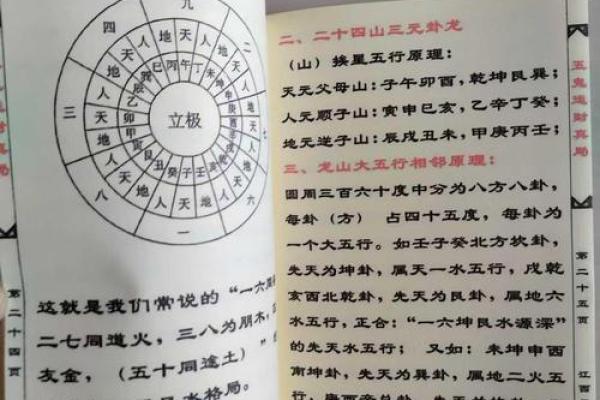 九
四
三
一
六
七
天
人
地
丙
午
丁
巳
乙
卯
甲
丑
癸
子
壬
亥
立极
这就是我们常说的“一六
二七同道火,三八为朋木,
友金,(五十同途土)”
水格局。
第二十四页
二、二十四山三元卦龙
(山)挨星五行原理:
天元父母山:子午卯酉,乾坤艮巽;
人元顺子山:寅申巳亥,乙辛丁癸;
地元逆子山:辰戌丑未,甲庚丙壬;
三、龙山大五行相邻原理:
圆周三百六十度中分为八方八卦,
每卦(方)占四十五度,每卦为
一个大五行。如壬子癸北方坎卦,
先天为坤卦,属天一水五行,戌乾
亥西北乾卦,先天为艮卦,属地六
水五行,正合:“一六坤艮水源深”
的先天水五行;又如:未坤申西
南坤卦,先天为巽卦,属地二火五
行,庚酉辛西方兑卦,
五鬼运财真局
第二十五页
江西